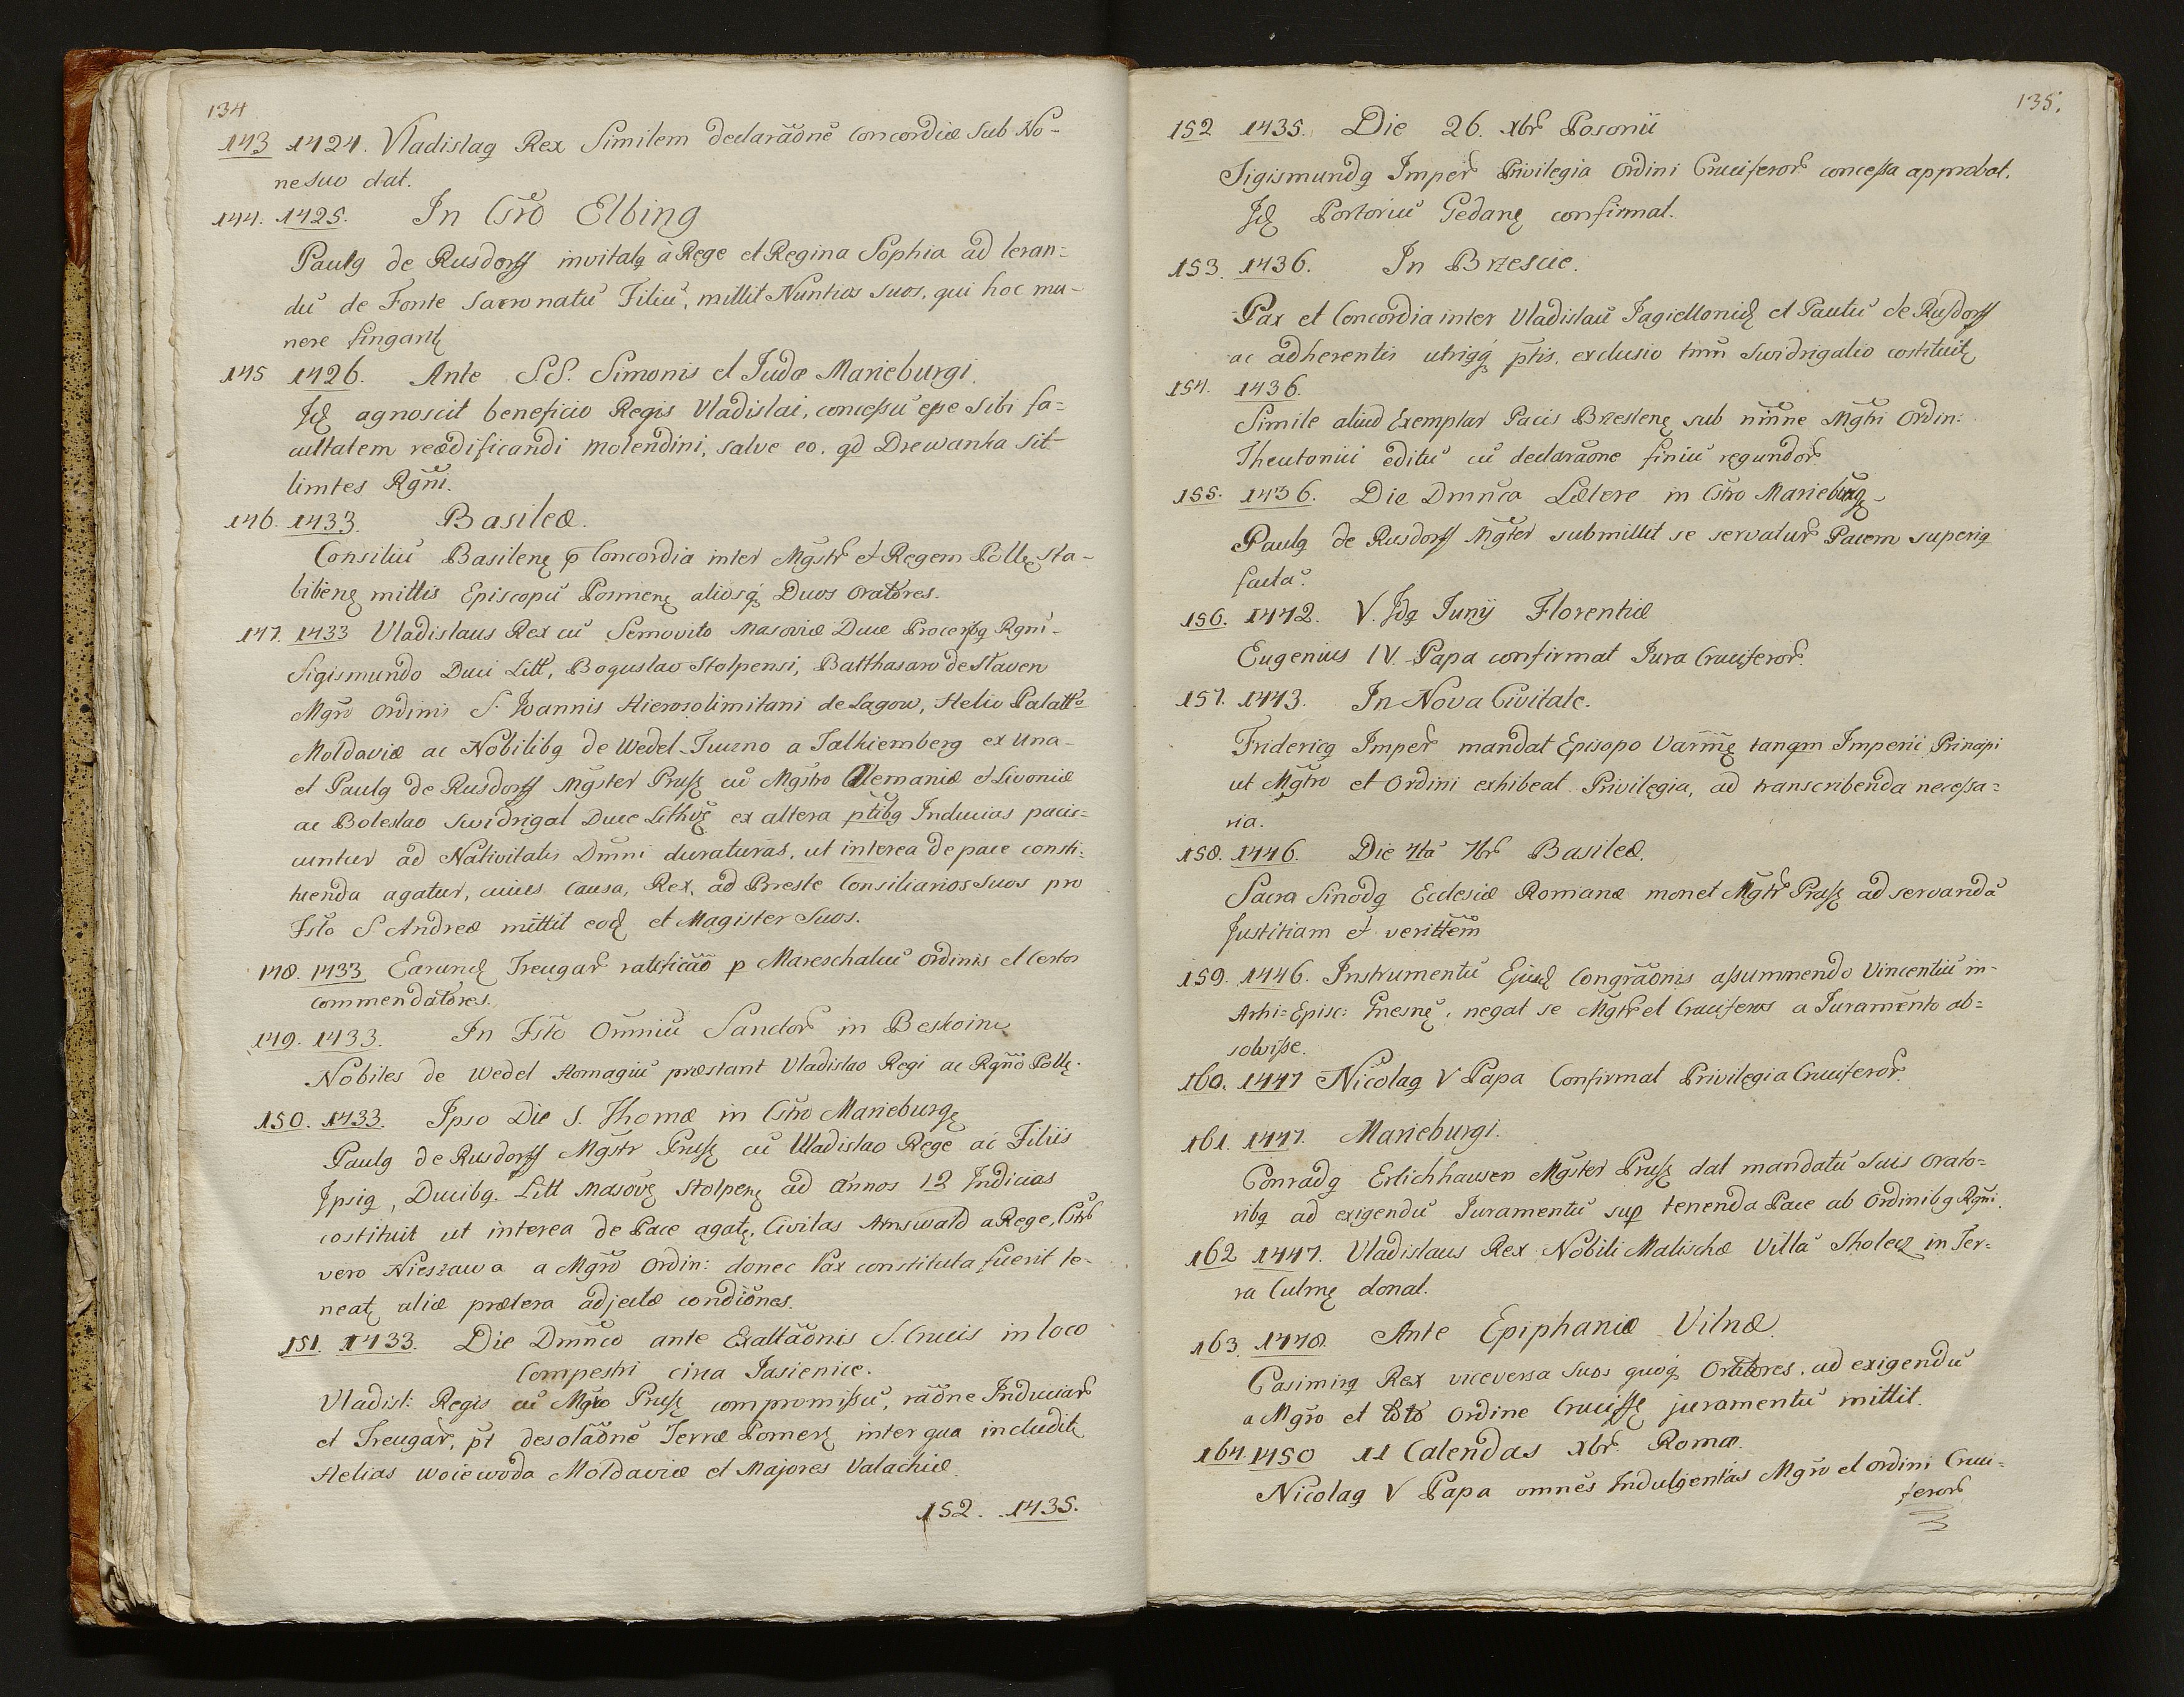 134
143 1424. Vladislaꝗ Rex Similem declarãone Concordiæ Sub No-
ne Suo dat.
144. 1425. In Cstro Elbing
Paulꝗ de Rusdorff invitatꝗ à Rege et Regina Sophia ad leran=
dũ de Fonte Sacro natũ Filiũ, mittit Nuntios Suos, qui hoc mu-
nere fingantɇ
145 1426. Ante S.S. Simonis et Judæ Marieburgi.
Idɇ agnoscit beneficio Regis Vladislai, concessũ esse Sibi fa=
cultatem reædificandi molendini, salve eo, qd Drewanka Sit
limtes Rgñi.
146. 1433. Basileæ.
Consiliũ Basilenɇ p̃ Concordia inter Mgstr̃ et Regem Pollɇ sta-
bilienɇ mittis Episcopũ Parmenɇ aliosq́ Duos oratores.
147. 1433 Vladislaus Rex cũ Semovito Masoviæ Duce Procerbꝗ Rgñi-
Sigismundo Duci Litt, Boguslao Stolpensi, Batthasaro de Slaven
Mgr̃o Ordinis S. Joannis Hierosolimitani de Lagow, Helio Palatto
Moldaviæ ac Nobilibꝗ de Wedel-Tuczno a Falkiemberg ex una-
et Paulꝗ de Rusdorff Mgster Prusɇ cũ Mgstro Alemaniæ et Livoniæ
ac Boleslao Swidrigal Duce Lithvɇ ex altera ptibꝗ Inducias pacis=
cuntur ad Nativitatis Dm̃ni duraturas, ut interea de pace consti=
tuenda agatur, cuius causa, Rex, ad Brzeste Consiliarios Suos pro
Fsto S. Andreæ mittit eodɇ et Magister Suos.
148. 1433. Earundɇ Treugar̃ ratificãõ p Mareschalcũ Ordinis et Certos
commendatores.
149. 1433. In Fsto Omniũ Sanctor̃ in Beskoin
Nobiles de Wedel Homagiũ præstant Vladislao Regi ac Rgño Pollɇ.
150. 1433. Ipso Die S. Thomæ in Cstro Marieburgɇ
Paulꝗ de Rusdorff Mgstr Prusɇ cũ Uladislao Rege ac Filiis
Ipsiꝗ, Ducibꝗ. Litt Masovɇ Stolpenɇ ad annos 12 Indicias
costituit ut interea de Pace agatɇ. Civitas Arnswald a Rege, Cstrũ
vero Nieszawa a Mgr̃o Ordin: donec Pax constituta fuerit te-
neatɇ aliæ prætera adjectæ condiõnes.
151. 1433. Die Dmñco ante Exaltãonis S. Crucis in loco
Compestri circa Jasienice.
Vladisl: Regis cũ Mgr̃o Prusɇ compromissũ, rãone Induciar̃
et Treugar̃, pt desolãone Terræ Pomerɇ inter qua includitɇ
Helias Woiewoda Moldaviæ et Majores Valachiæ.
152. 1435.
135.
152 1435. Die 26. Xbr̃ Posonii
Sigismundꝗ Imper̃ Privilegia Ordini Cruciferor̃ concessa approbat.
Idɇ Portoriũ Gedanɇ confirmat.
153. 1436. In Brzescie.
Pax et Concordia inter Vladislaũ Jagiellonidɇ et Paulũ de Rusdorff
ac adherentis utriꝗq́ ptis, exclusio tmñ Swidrigalio costituitɇ
154. 1436.
Simile aliud Exemplar Pacis Brzestenɇ sub nm̃ne Mgtri Ordin:
Theutonici editũ cũ declarãone finiũ regundor̃
155. 1436. Die Dmñca Lætere in Cstro Marieburgɇ
Paulꝗ de Rusdorff Mgter submittit se servatur̃ Pacem superiꝗ
factã.
156. 1442. V. Idꝗ Junÿ Florentiæ
Eugenius IV. Papa confirmat Jura Cruciferor̃.
157. 1443. In Nova Civitate.
Fridericꝗ Imper̃ mandat Episopo Varm̃ɇ tanqm Imperii Principi
ut Mgtro et Ordini exhibeat Privilegia, ad transcribenda necessa=
ria.
158. 1446. Die 4ta 7br̃ Basileæ.
Sacra Sinodꝗ Ecclesiæ Romanæ monet Mgtr̃ Prusɇ ad servandã
Justitiam et verittem
159. 1446. Instrumentũ Ejusdɇ Congrãonis assummendo Vincentiũ in-
Arhi=Episc: Gnesnɇ, negat se Mgtr̃ et Cruciferos a Juramento ab=
solvisse.
160. 1447 Nicolaꝗ V Papa Confirmat Privilegia Cruciferor̃.
161. 1447. Marieburgi.
Conradꝗ Erlichhausen Mgster Prusɇ dat mandatũ Suis Orato-
ribꝗ ad exigendũ Juramentũ sup tenenda Pace ab Ordinibꝗ Rgñi.
162 1447. Vladislaus Rex Nobili Malischæ Villã Sholecz in Ter=
ra Culmɇ donat.
163. 1448. Ante Epiphaniæ Vilnæ.
Casimirꝗ Rex viceversa Suos quoq́ Oratores, ad exigendũ
a Mgr̃o et toto Ordine Cruciffɇ juramentũ mittit.
164. 1450 11 Calendas Xbr̃. Romæ.
Nicolaꝗ V Papa omnes Indulgentias Mgr̃o et Ordini Cruci=
feror̃